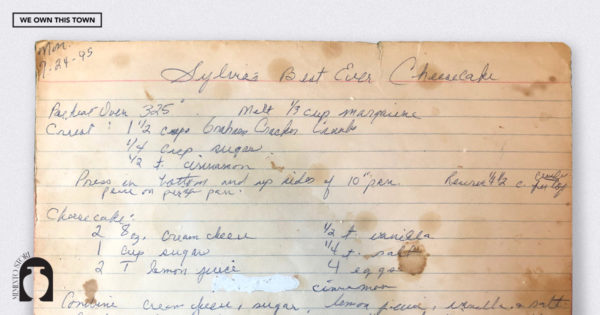 WE OWN THIS TOWN
Mon.
7-24-95
Sylvia's Best Ever Cheesecake
Preheat Oven 325° Melt 1/3 cup margarine
Crust: 1 1/2 cups Graham Cracker Crumbs
1/4 cup sugar
1/2 t. cinnamon
Press in bottom and up sides of 10" pan. Reserve 1/2 c. crumbs for top
pan.
Cheesecake:
2 8 oz. cream cheese 1/2 t. vanilla
1 cup sugar 1/4 t. salt
2 T lemon juice 4 eggs
cinnamon
Combine cream cheese, sugar, lemon juice, vanilla & salt
MEMENTO STORI